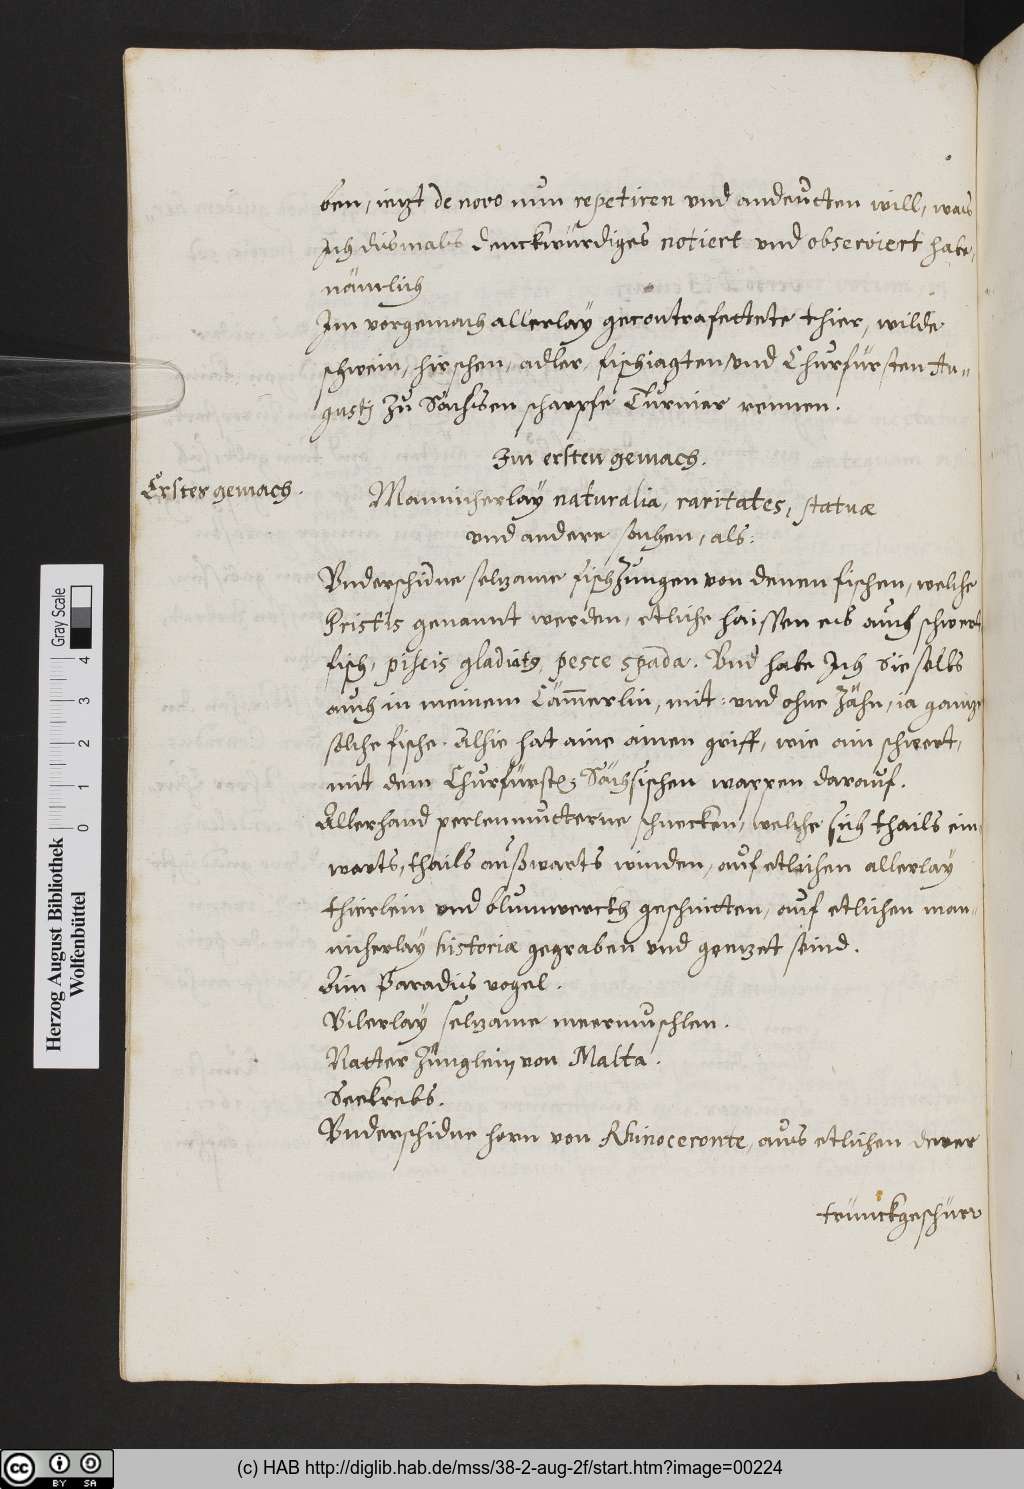 ben, ietzt de novo nun repetiren vnd andeutten will, was
Ich dismals denckwürdiges notiert vnd observiert habe,
nämlich
Im vorgemach allerlaÿ gecontrafettete thier, wilde
schwein, hirschen, adler, fischiagten, vnd Churfürsten Au-
gustj zu Sachssen scharpfe Turnier rennen.
Im ersten gemach.
Erster gemach.
Mannicherlaÿ naturalia, raritates, statuæ
vnd andere sachen, als:
Vnderschidne selzame fischZungen von denen fischen, welche
Pristis genannt werden, etliche haissen eis auch schwert,
fisch, piscis gladiatꝰ, pesce spada. Vnd habe Ich sie selbs
auch in meinem Cam̄erlin, mit: vnd ohne Zähn, ia gantze
solche fische. Alhie hat aine ainen griff, wie ain schwert,
mit dem Churfürstl: Sächsischen wappen darauf.
Allerhand perlenmutterne schnecken, welche sich thails ein-
warts, thails außwarts winden, auf etlichen allerlaÿ
thierlein vnd blumwerckh geschnitten, auf etlichen man-
nicherlaÿ historiæ gegraben vnd geetzet seind.
Ain Paradis vogel.
Vilerlaÿ selzame meermuschlen.
Natter Zünglein von Malta.
Seekrebs.
Vnderschidne horn von Rhinoceronte, aus etlichen derer
trünckgeschürr
Herzog August Bibliothek
Wolfenbüttel
0 1 2 3 4
Gray Scale
cc BY SA
(c) HAB http://diglib.hab.de/mss/38-2-aug-2f/start.htm?image=00224